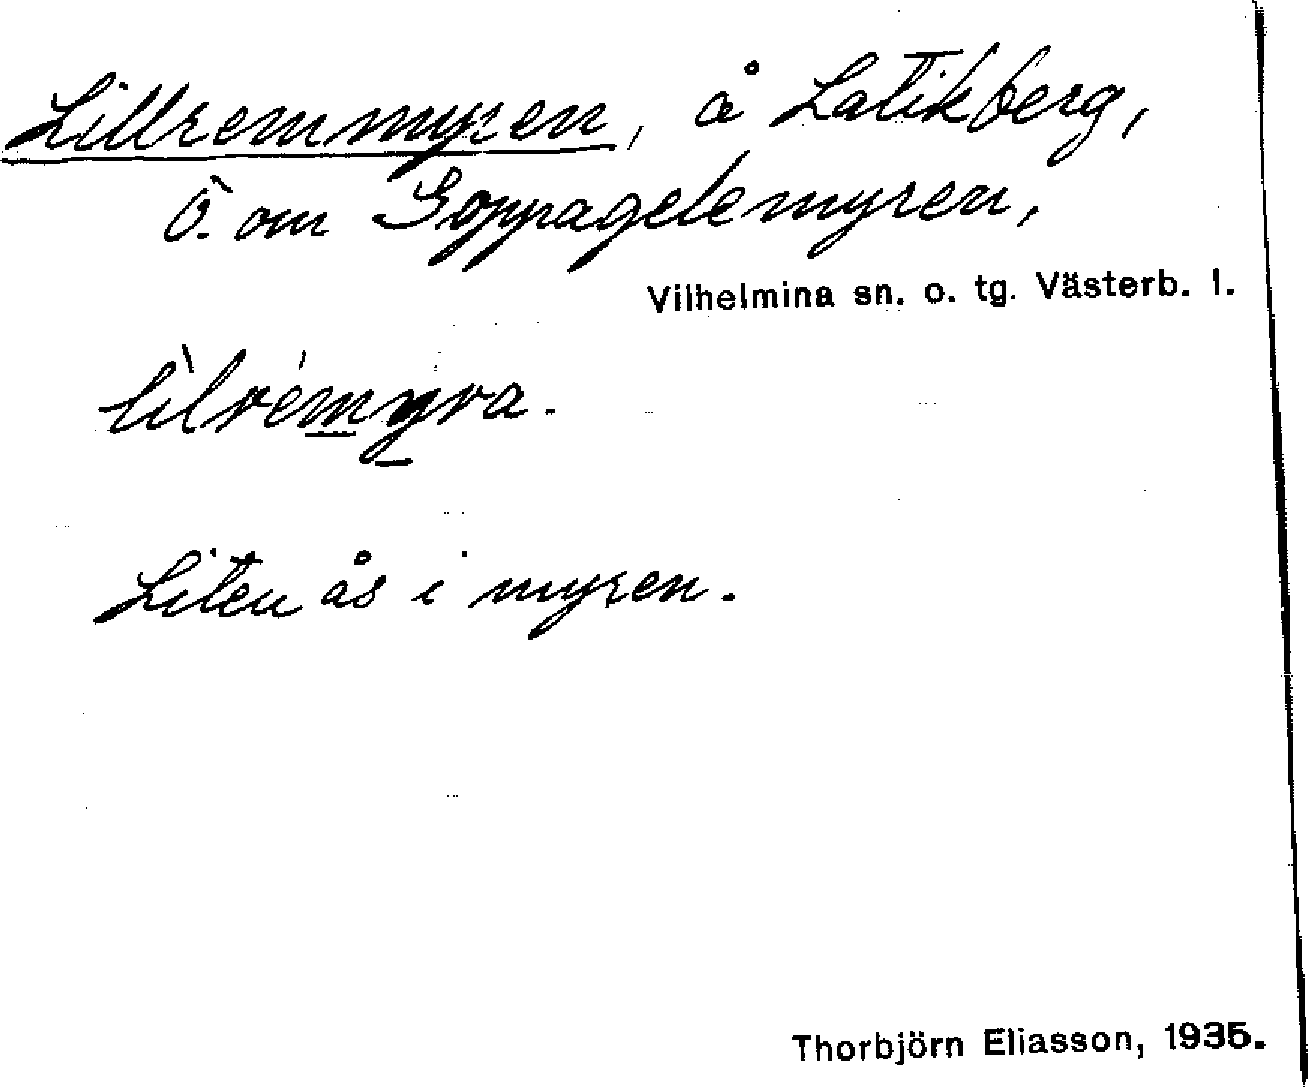 Lillremmyren, å Latikberg,
Ö. om Goppagelemyren,
Vilhelmina sn. o. tg. Västerb. l.
lìlrémyra.
Liten ås i myren.
Thorbjörn Eliasson, 1935.